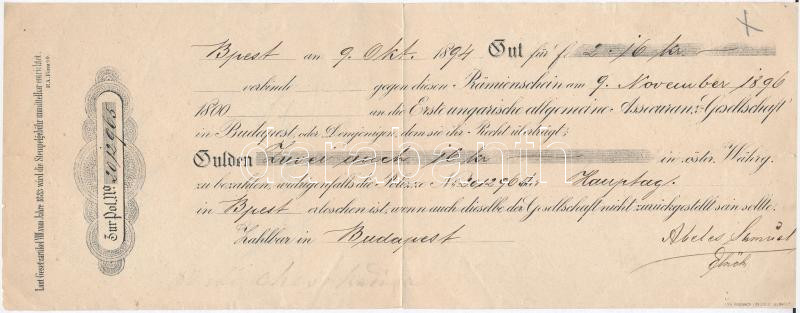 Bpest am 9. Okt. 1894 Gut für f. 2 - 16 kr.
verbinde gegen diesen Prämienschein am 9. November 1896
1800 an die Erste ungarische allgemeine Assecuranz-Gesellschaft
in Budapest, oder Denjenigen, dem sie ihr Recht überträgt;
Gulden Zwei auch 16 kr in österr. Währg.
zu bezahlen, widrigenfalls die Polizze No. Hauptag.
in Bpest erloschen ist, wenn auch dieselbe der Gesellschaft nicht zurückgestellt sein sollte.
Zahlbar in Budapest
Abeles
Zur Pol. No.
Laut Gesetzartikel VIII. vom Jahre 1883 wird die Stempelgebühr unmittelbar entrichtet.